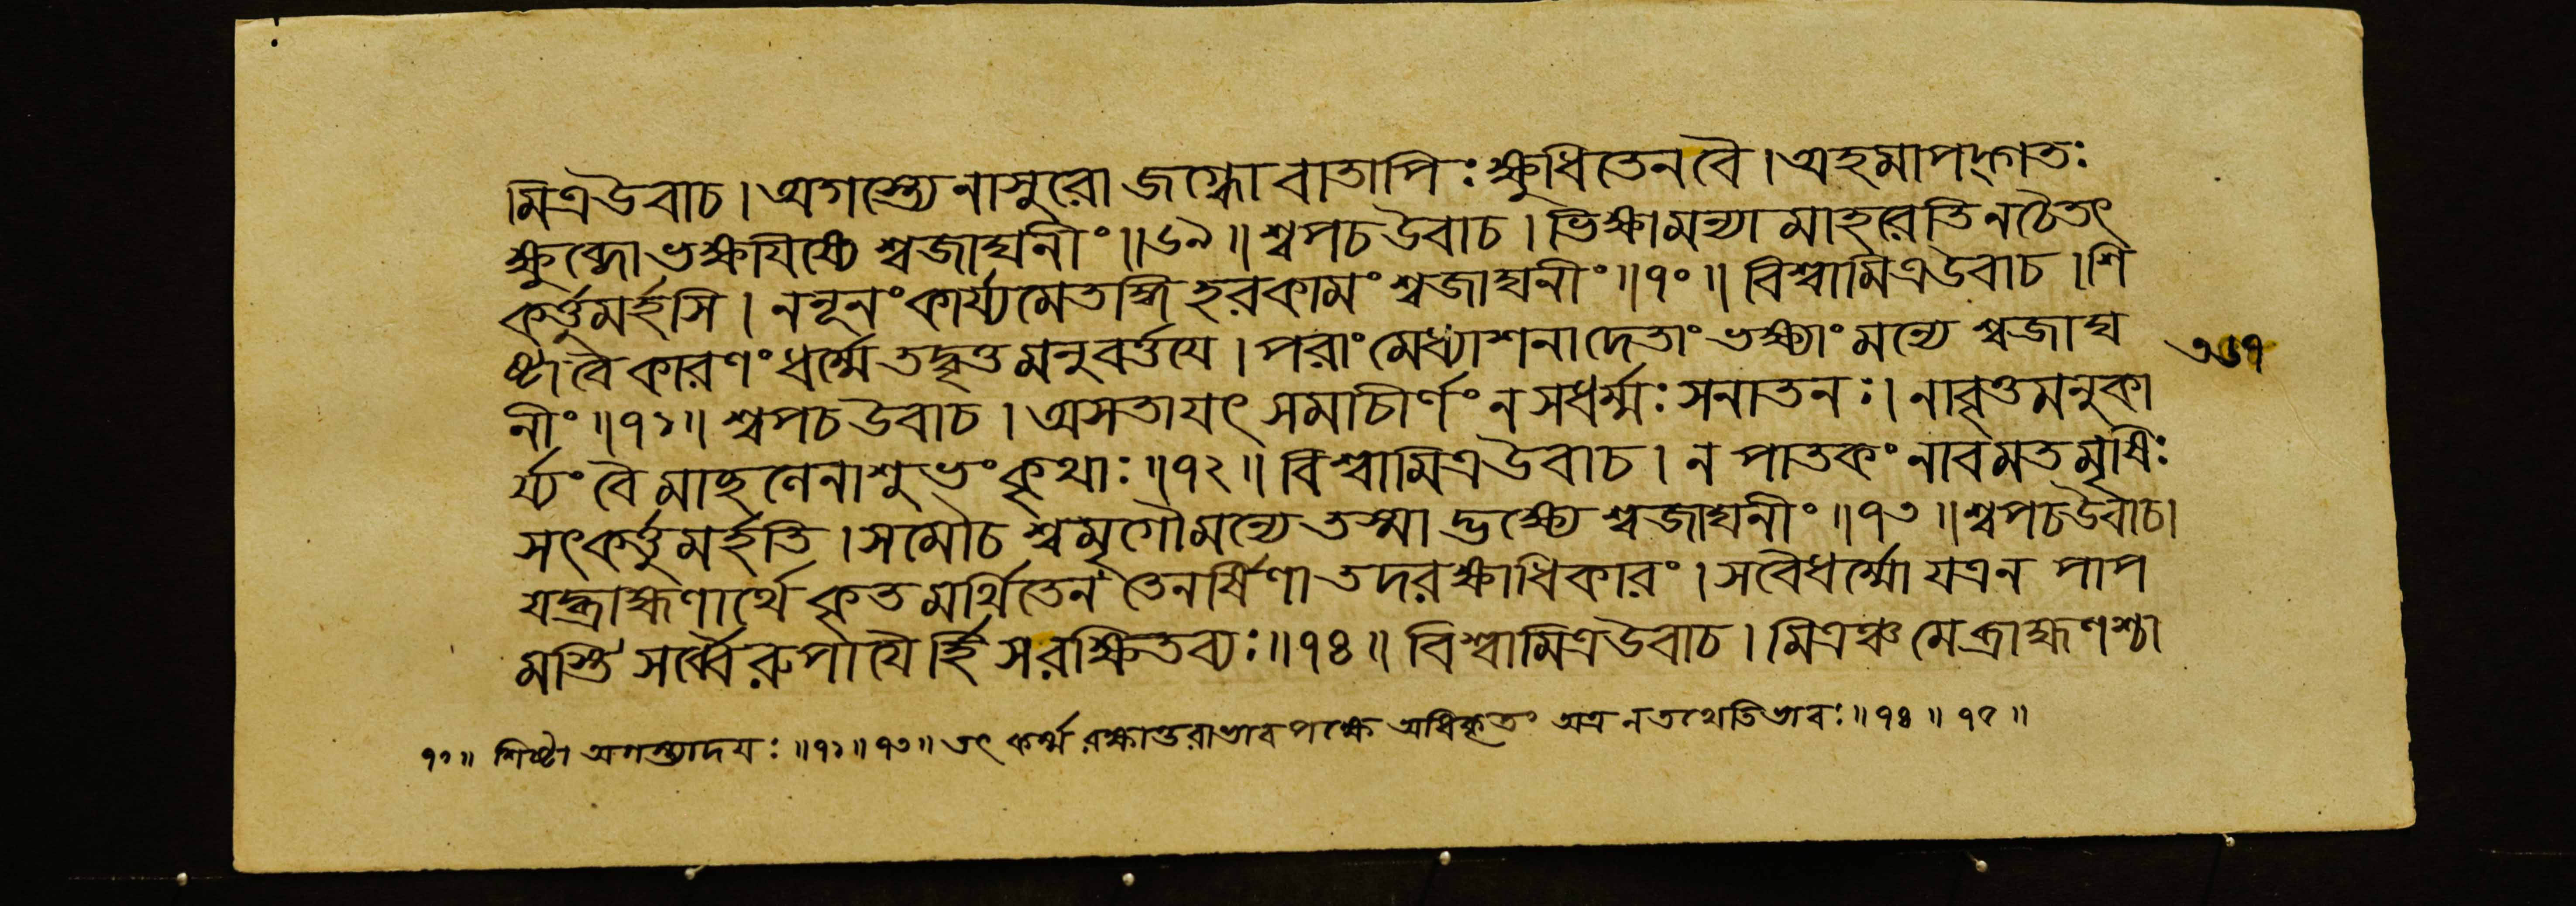 মিত্রউবাচ। অগস্ত্যেনাসুরো জগ্ধো বাতাপিঃ ক্ষুধিতেনবৈ। অহমাপদ্গতঃ
ক্ষুব্ধো ভক্ষযিষ্যে শ্বজাঘনীং॥৬৯॥ শ্বপচউবাচ। ভিক্ষামন্যামাহরেতি নচৈতৎ
কর্ত্তুমর্হসি। ননূনং কার্য্যমেতদ্ধি হরকামং শ্বজাঘনীং॥৭০॥ বিশ্বামিত্রউবাচ। শি
ষ্টাবৈ কারণং ধর্ম্মে তদ্বৃত্তমনুবর্ত্তযে। পরাং মেধ্যাশনাদেতাং ভক্ষ্যাং মন্যে শ্বজাঘ
নীং॥৭১॥ শ্বপচউবাচ। অসতাযৎ সমাচীর্ণং নসধর্ম্মঃ সনাতনঃ। নাবৃত্তমনুকা
র্য্যং বৈ মাছলেনাশুভংকৃথাঃ॥৭২॥ বিশ্বামিত্রউবাচ। ন পাতকং নাবমতমৃষিঃ
সৎকর্ত্তুমর্হতি। সমৌচ শ্বমৃগৌমন্যে তস্মাদ্ভক্ষ্যে শ্বজাঘনীং॥৭৩॥ শ্বপচউবাচ।
যদ্ব্রাহ্মণার্থে কৃতমর্থিতেন তেনর্ষিণা তদরক্ষাধিকারং। সবৈধর্ম্মো যত্রন পাপ
মস্তি সর্ব্বৈরুপাযৈর্হি সরক্ষিতব্যঃ॥৭৪॥ বিশ্বামিত্রউবাচ। মিত্রঞ্চ মেব্রাহ্মণশ্চা
৭১॥ শিষ্টা অগস্ত্যাদযঃ॥৭২॥৭৩॥ তৎ কর্ম্ম রক্ষান্তরাভাবপক্ষে অধিকৃতং অত্র নতথেতিভাবঃ॥৭৪॥৭৫॥